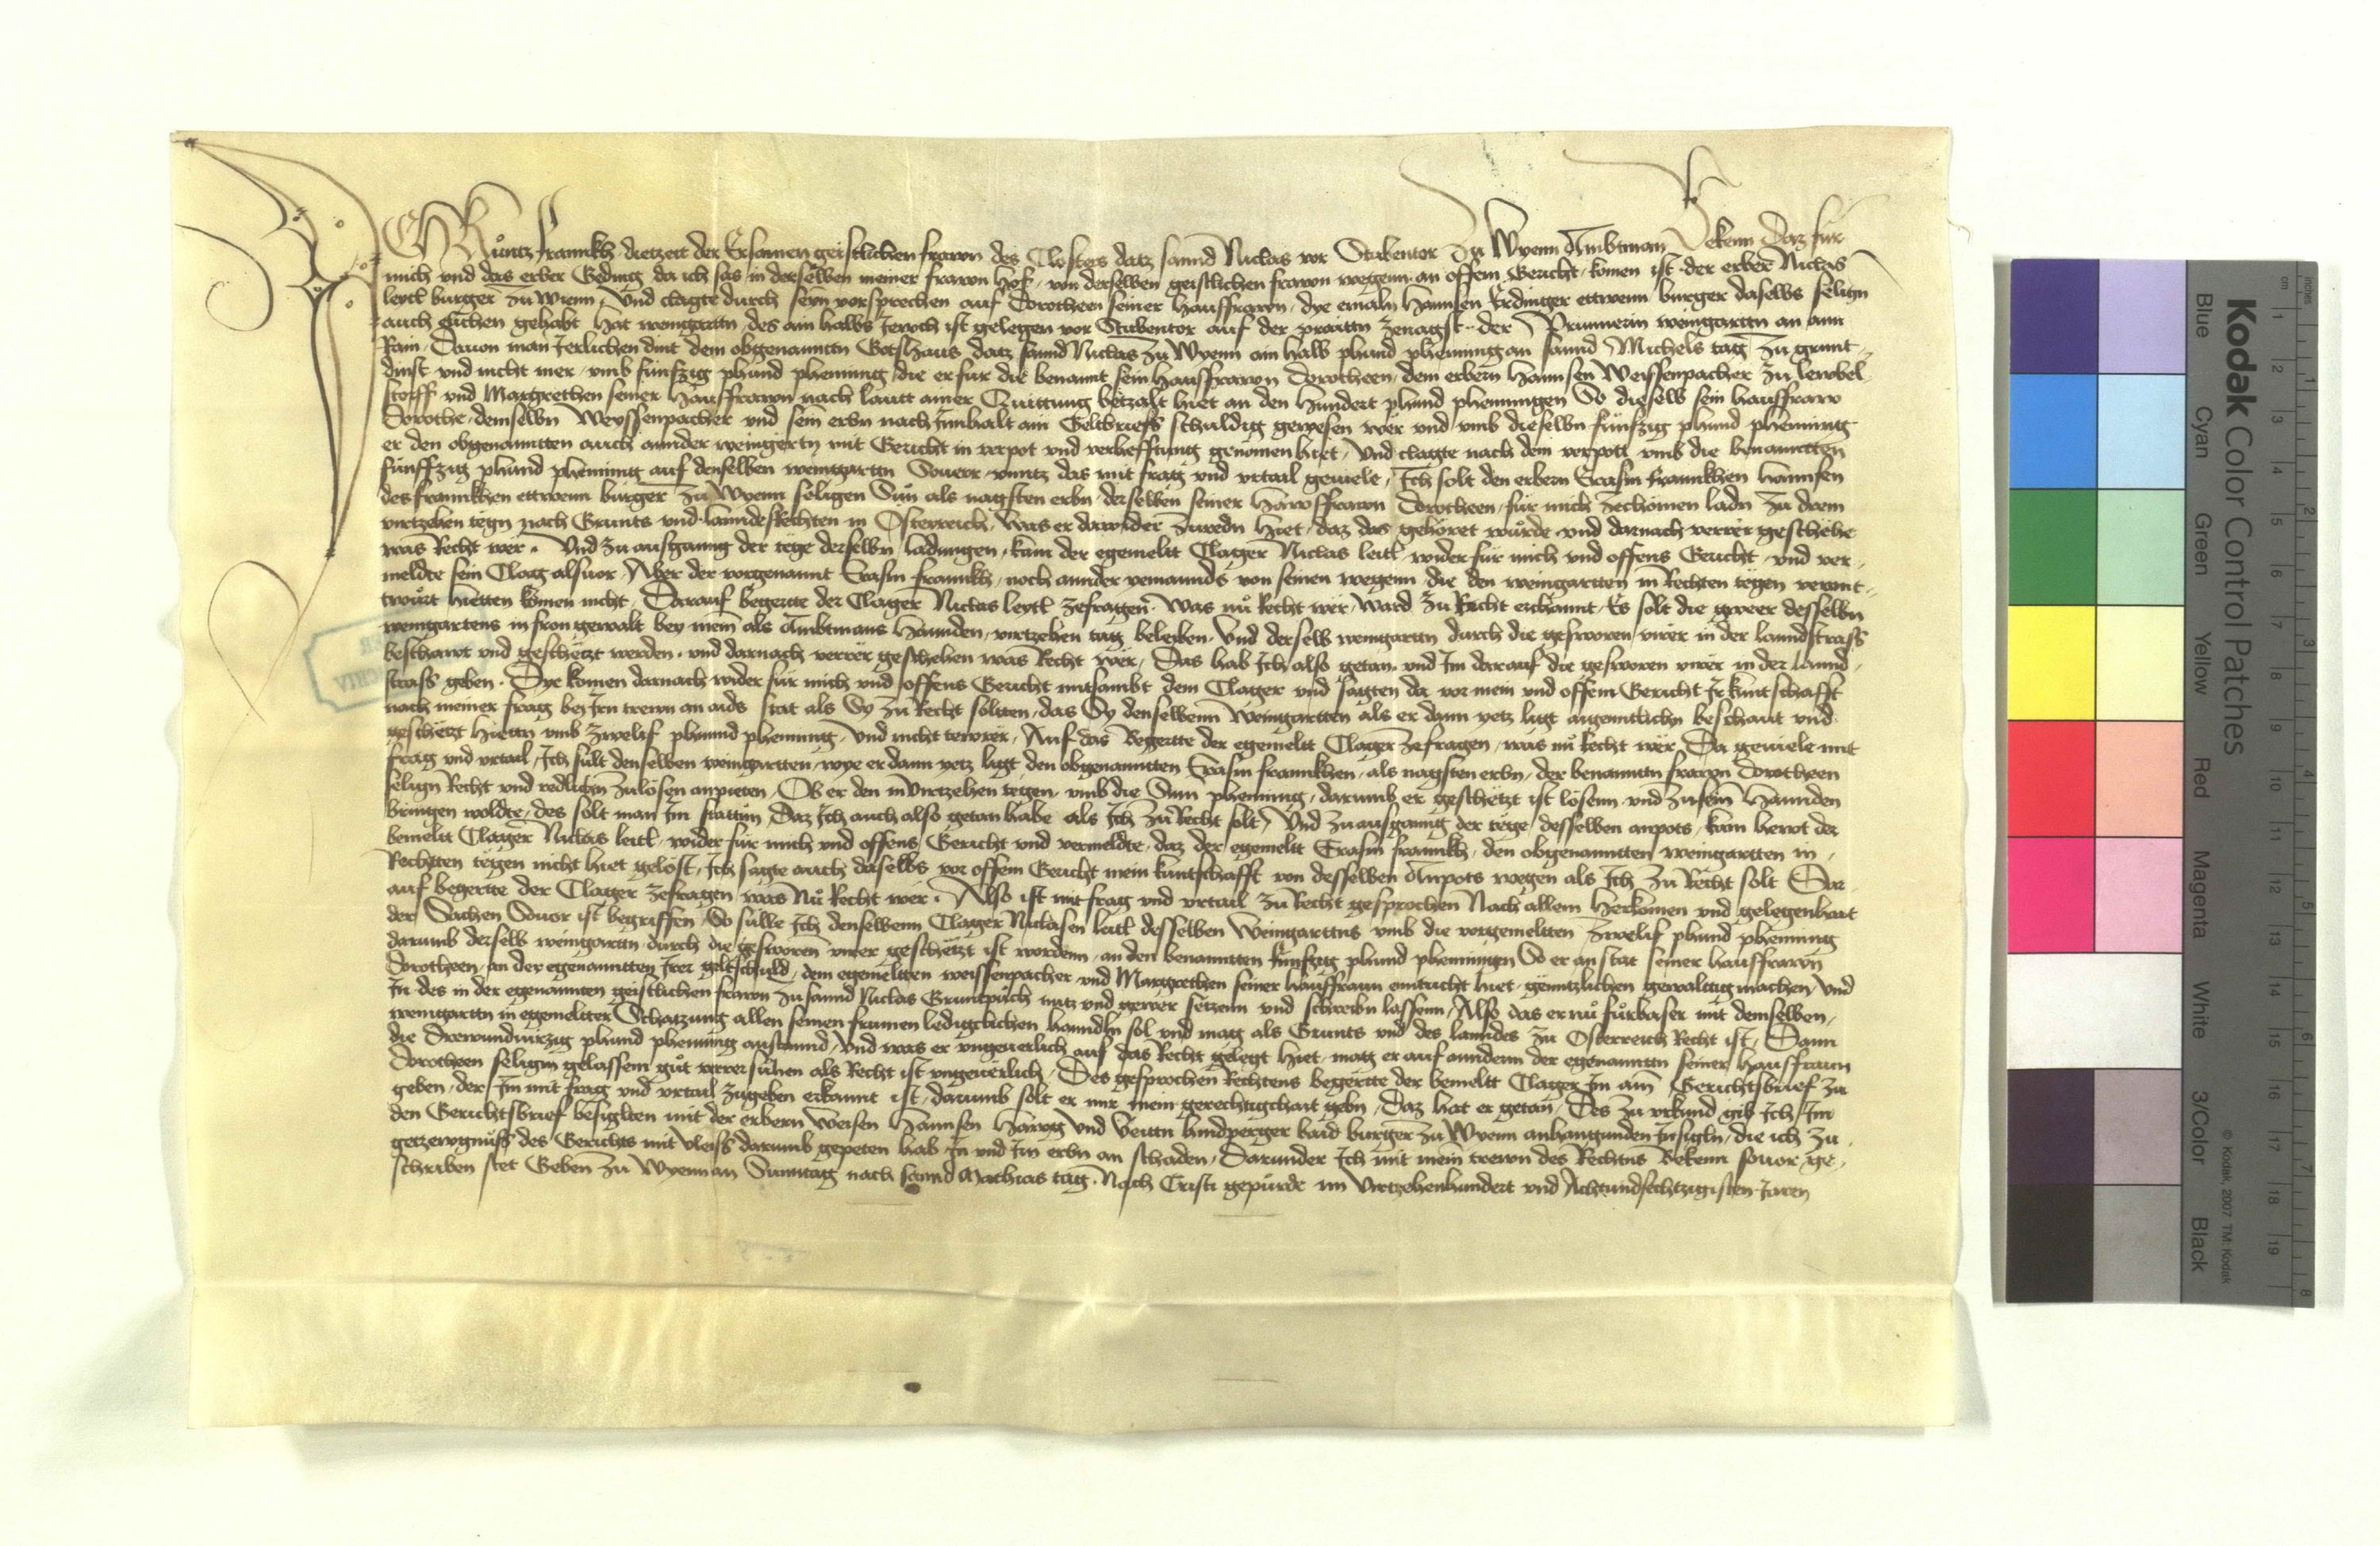 ICH Kůntz Frannkh dietzeit der Ersamen geistlichen frawn des Closters datz sannd Niclas vor Stubentor Zu Wyenn Ambtman Bekenn Daz für
mich und das erber Geding da ich sas in derselben meiner frawn Hof, von derselben geistlichen frawn wegenn an offem Gericht, komen ist der erber Niclas
leytl burger zu Wienn, Und clagte durch sein vorsprechen auf Dorotheen seiner hausfrawn, dye emaln Hannsen Erdinger ettwenn burger daselbs selign
auch Elichen gehabt hat weingartn, des ain halbs Jewch ist gelegen vor Stubentor auf der praittn zenagst der Prunnerin weingartn an aim
Rain, Dauon man Jerlichen dint dem obgenanntn Gotshaus datz sannd Niclas zu Wyenn ain halb phund phenning an sannd Michels tag zu grunt-
dinst und nicht mer, umb fünfzig phund phenning, die er für die benannt sein hausfrawn Dorotheen, dem erbern Hannsen Weissenpacher zu lewbel-
storff und Margrethen seiner Hausfrawn nach lautt ainer Quittung betzalt hiet an den Hundert phund phenningen So dieselb sein hausfraw
Dorothe, demselbn Weyssenpacher und sein erbn nach Innhalt ains Geltbriefs schuldig gewesen wer und umb dieselbn fünfzig phund phenning
er den obgenanntten auch annder weingertn mit Gericht in verpot und verhefftung genomen hiet, Und clagte nach dem verpott umb die benanntten
fünffzig phund phenning auf denselben weingartn Souerr, unntz das mit frag und urtail geuiele, Ich solt den erbern Erasm Frannkhen Hannsen
des frannkhen ettwenn burger zu Wyenn seligen Sun als nagsten erbn derselben seiner Hawsfrawn Dorotheen, für mich zechomen ladn zu drein
virtzehen tegn nach Grunts und lanndeskechten in Osterreich, Was er dawider zuredn hiet, daz das gehöret würde und darnach verrer geschehe
was Recht wer. Und zu ausganng der tege derselbn ladungen, kam der egemeltt Clager Niclas leitl wider für mich und offens Gericht, und ver-
meldte sein Clag alsuor, Aber der vorgenannt Erasm frannkh, noch annder yemannds von seinen wegenn, die den weingartten in Rechten tegen verant-
twurt hietten komen nicht. Darauf begertte der Clager Niclas leytl zefragen. Was nu Recht wer, Ward zu Recht erchannt, Es solt die gweer desselbn
weingartens in fron gewalt bey mein als Ambtmans Hannden, virtzehen tag beleiben. Und derselb weingartn durch die gesworen virer in der lanndstrass
beschawt und geschetzt werden. und darnach verrer geschehen was Recht wer, Das hab Ich also getan. und Im darauf die gesworen virer in der lannd-
strass geben. Dye komen darnach wider für mich und offens Gericht mitsambt dem Clager und sagten da vor mein und offem Gericht Ir kuntschafft
nach meiner frag bei Irn trewn an aids stat als Sy zu Recht soltten, das Sy denselbenn Weingartten als er dann yetz ligt aigenntlichn beschaut und
geschetzt hiettn umb Zwelif phunnd phenning, Und nicht tewrer, Auf das Begertte der egemeltt Clager zefragen, was nu Recht wer, Da geuiele mit
frag und urtail, Ich sült denselben weingartten, wye er dann yetz ligt, den obgenanntten Erasm frannkhen, als nagsten erbn, der benanntn frawn Dorotheen
selign Recht und redlichn zulösen anpieten, Ob er den in virtzehen tegen, umb die Sum phenning, darumb er geschetzt ist lösenn und zu sein Hannden
bringen woldte, des solt man Im stattun, Daz Ich auch also getan habe als Ich zu Recht solt, Und zu ausganng der tege, desselben anpots, kam herwt der
bemeltt Clager Niclas leitl, wider für mich und offens Gericht und vermeldte, daz der egemeltt Erasm frannkh, den obgenanntten weingartten in
Rechtten tegen nicht hiet gelöst, Ich sagte auch daselbs vor offem Gericht mein kuntschafft von desselben Anpots wegen als Ich zu Recht solt Dar-
auf begertte der Clager zefragen was Nu Recht wer. Also ist mit frag und urtail zu Recht gesprochen Nach allem Herkomen und gelegenhait
der Sachen Souor ist begriffen, So sulle Ich denselbenn Clager Niclasen leitl desselben Weingarttns umb die vorgemeltten Zwelif phund phenning
darumb derselb weingarttn durch die gesworen virer geschetzt ist wordenn, an den benanntten Fünfzig phund phenningn So er an stat seiner hausfrawn
Dorotheen, an der egenanntten Irer geltschuld, dem egemeltten weissenpacher und Margrethen seiner hausfraun entricht hiet, gentzlichen gewalttig machen, Und
In des in der egenannten geistlichen frawn zu sannd Niclas Gruntpuch nutz und gewer setzenn und schreibn lassenn, Also das er nu fürbaser mit demselben
weingartn in egemeltter Schatzung allen seinen frumen ledigclichen hanndln sol und mag als Grunts und des lanndes zu Osterreich Recht ist, Dann
die Drewundvirzig phund phening anstannd, Und was er ungeuerlich auf das Recht gelegt hiet, mag er auf anndern der egenanntn seiner Hausfraun
Dorotheen selign gelassem gut verrer suhen als Recht ist ungeuerlich, Des gesprochen Rechtens begertte der bemeltt Clager Im ain Gerichtsbrief zu
geben, der Im mit frag und urtail zugeben erkannt ist, darumb solt er mir mein gerechtigchait gebn, Daz hat er getan, Des zu urkund gib Ich Im
den Gerichtsbrief besiglten mit der erbern Weisen Hannsen Haring Und Veittn hindperger baid burger zu Wyenn anhangunden Insigln, die ich zu
getzewgnuss des Gerichts mit vleiss darumb gepeten hab In und Irn erbn an schaden, Darunder Ich mit mein trewn des Rechtns Bekenn souor ge-
schriben stet Geben zu Wyenn an Sunntag nach sannd Mathias tag. Nach Cristi gepurde im Virtzehenhundert und Achtundsechtzigisten Jaren
Kodak Color Control Patches
Blue Cyan Green Yellow Red Magenta White 3/Color Black
© Kodak, 2007 TM: Kodak
inches 1 2 3 4 5 6 7 8
cm 1 2 3 4 5 6 7 8 9 10 11 12 13 14 15 16 17 18 19